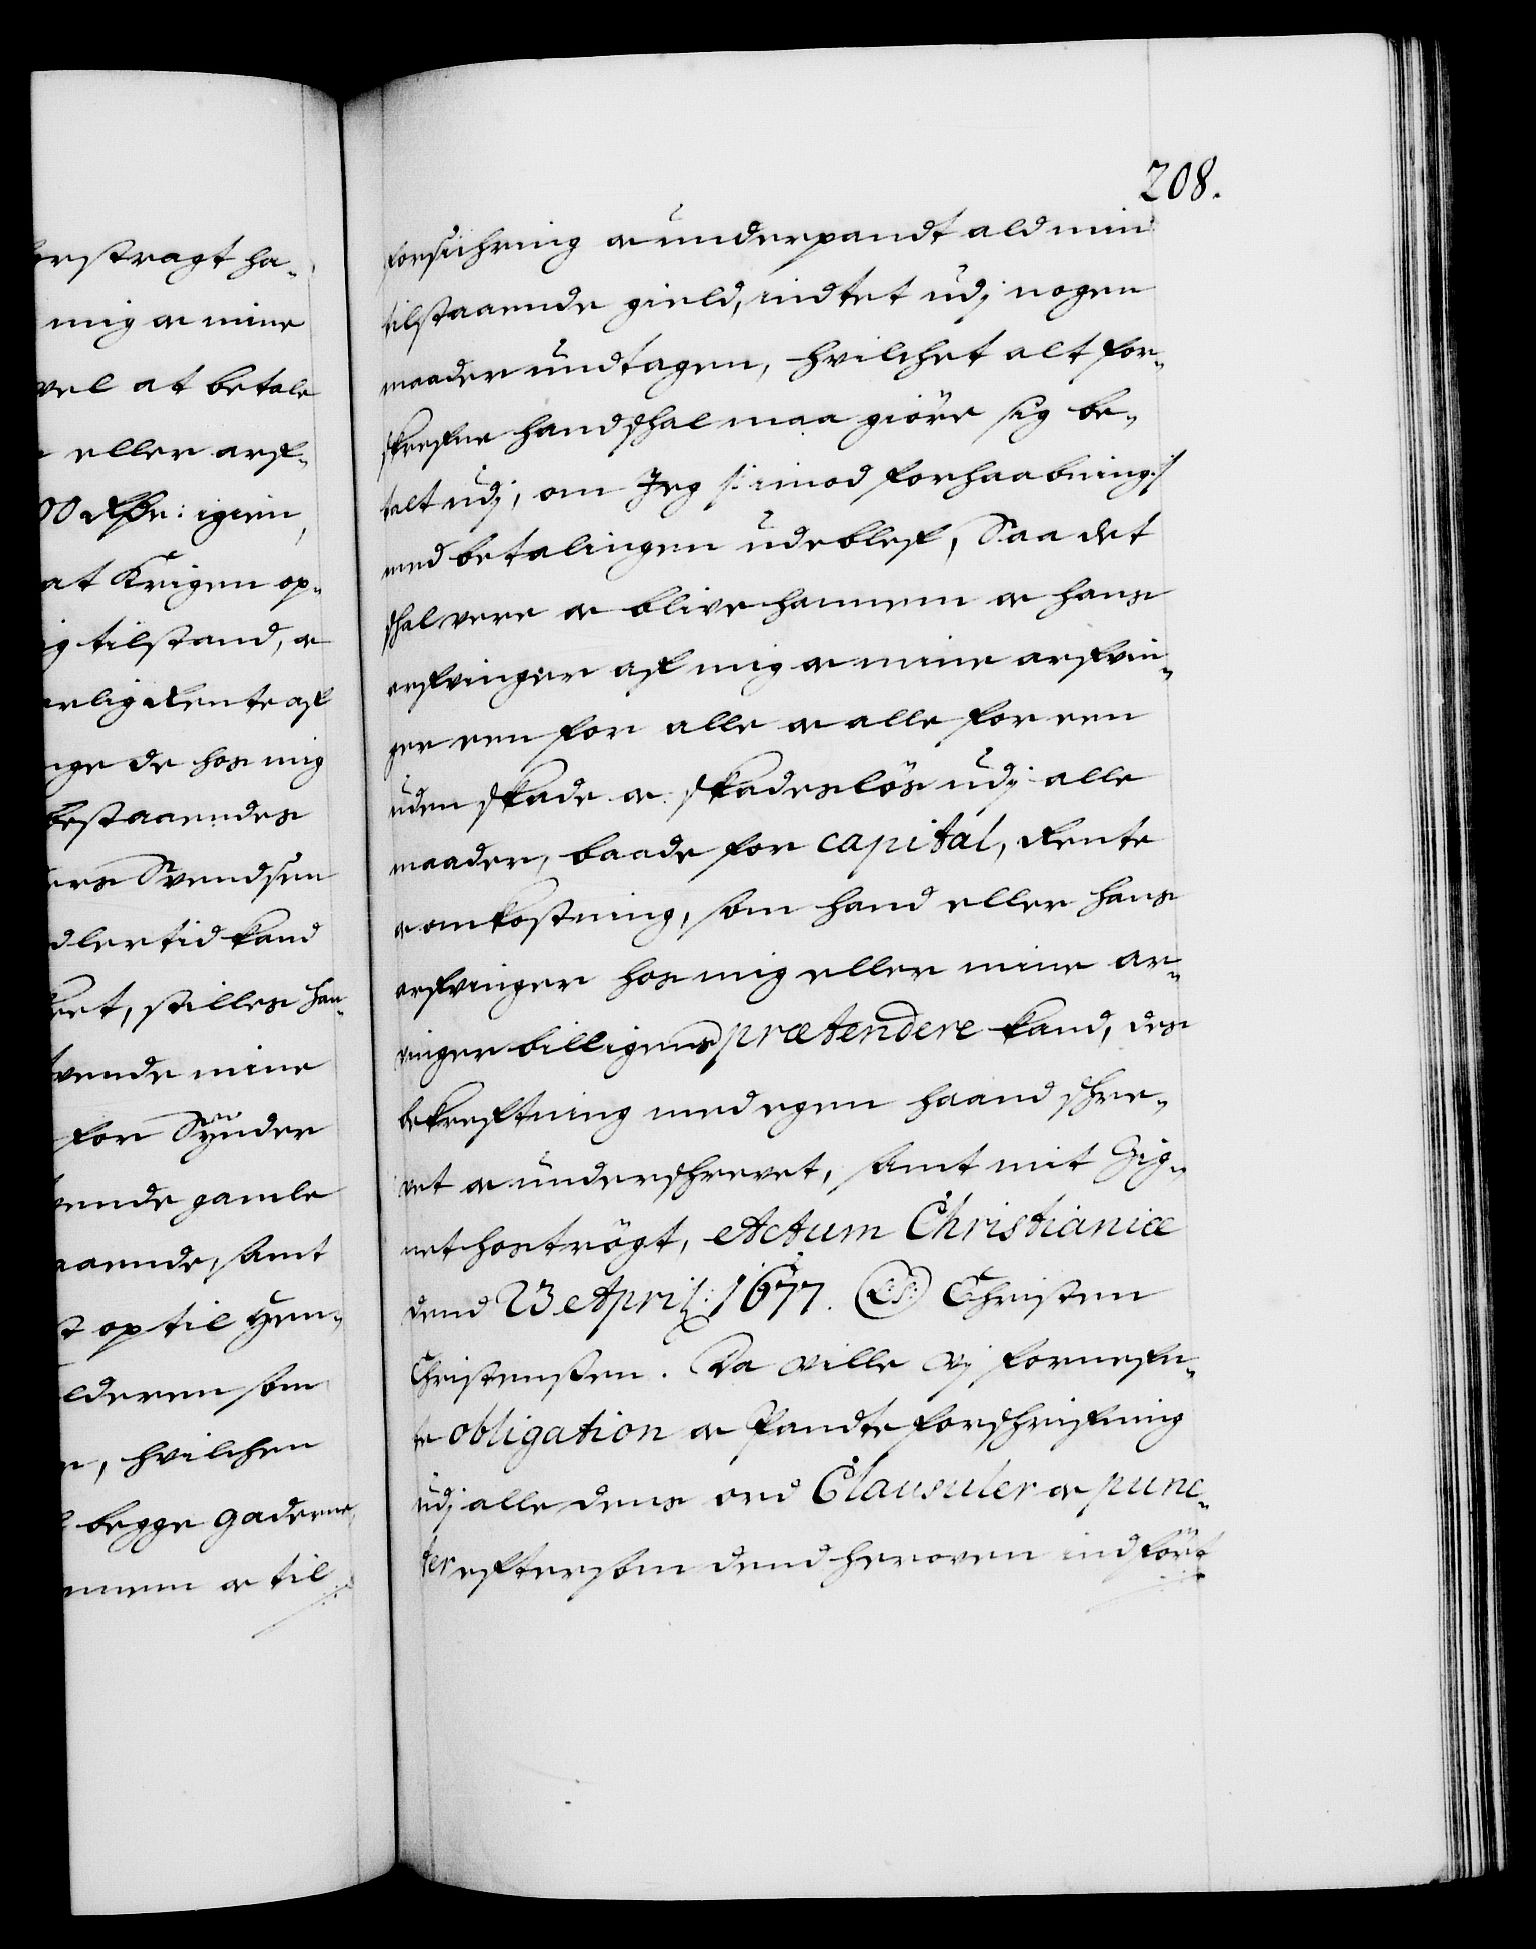 erstragt ha-
mig og mine
vel at betale
eller arf-
00 Rdr: igien,
at Krigen op-
ig tilstand, og
erlig Rente af
nge de hos mig
bestaaendes
ers Svendsen
dlertid kand
ket, stilles han-
vende mine
for Synder
ende gamle
aaende, samt
t op til hen-
lderen som
n, hvilchen
begge gaderne,
nnem og til
208.
forsichring og underpandt ald min
tilstaaende gield, indtet udj nogen
maader undtagen, hvilchet alt for-
skrefne hand schal maa giöre sig be-
talt udj, om Jeg /: imod forhaabning :/
med betalingen udeblef, Saa det
schal vere og blive hannem og hans
arfvinger af mig og mine arfvin-
ger een for alle og alle for een
uden skade og skadeslös udj alle
maader, baade for capital, Rente
og omkostning, som hand eller hans
arfvinger hos mig eller mine ar-
vinger billigens prætendere kand, des
bekreftning med egen haand schre-
vet og underschrevet, samt mit Zig-
net hoströgt, Actum Christianiæ
dend 23 April: 1677. (L.S.) Christen
Christensen. Da ville Vj fornefn-
te obligation og Pandteforschrifning
udj alle dens ord Clausuler og punc-
ter eftersom dend heroven indfört